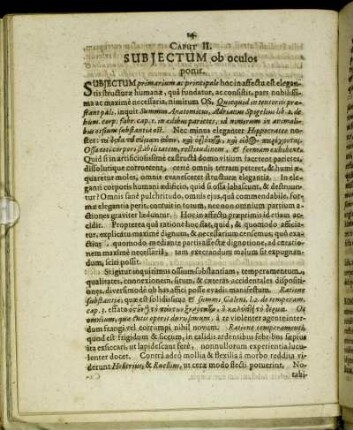 14
CAPUT II.
SUBJECTUM ob oculos
ponit.
SUBJECTUM primarium ac principale hoc in affectu est elegan-
tis structuræ humanæ, quâ fundatur, ac consistit, pars nobilissi-
ma ac maximè necessaria, nimirum OS. Quicquid in tenetis præ-
stant pali, inquit Summus Anatomicus, Adrianus Spigelius lib. 2. de
hum. corp. fabr. cap. 1. in ædibus parietes; id nimirum in animali-
bus ossium substantia est. Nec minus eleganter Hippocrates no-
ster:
Ossa toti corpori stabilitatem, rectitudinem, & formam exhibent.
Quid si in artificiosissimè exstructâ domo vitium facerent parietes,
dissolutique corruerent, rerum omnia terram peterent, & humi æ-
quarentur moles, omnis evanesceret structuræ elegantia. In ele-
ganti corporis humani ædificio, quid si ossa labascunt, & destruun-
tur? Omnis sanè pulchritudo, omnis ejus, quâ commendabilis, for-
mæ elegantia perit, corruit in totum, nec non omnium partium a-
ctiones graviter læduntur. Hoc in affectu præprimis id etiam ac-
cidit. Propterea quâ ratione hoc fiat, quid, & quomodo afficia-
tur, explicatu maximè dignum, & necessarium censemus, quò exa-
ctius, quomodo mediante partis affectæ dignotione, ad curationem
maximè necessariâ, tam execrandum malum sit expugnan-
dum, sciri possit.
Stigitur inquitimus ossium substantiam, temperamentum,
qualitates, connexionem, situm, & cæteris accidentales dispositio-
nes, diversimodè ob has affici posse evadit manifestum. Ratione
substantiæ, quæ est solidissima & siemni. Galeni. l. 2. de temperam.
cap. 3. effato
omnium, quæ cutis operit durissimum, à re violenter agente inter-
dum frangi vel corrumpi nihil novum. Ratione temperamenti,
quod est frigidum & siccum, in calidis ardentibus febribus sæpius
ita exsiccari, ut lapidescant ferè, nonnullorum experientia lucu-
lenter docet. Contrà adeò mollia & flexilia à morbo reddita vi-
derunt Hollerius, & Ruellius, ut cera modo flecti potuerint. No-
tabi-